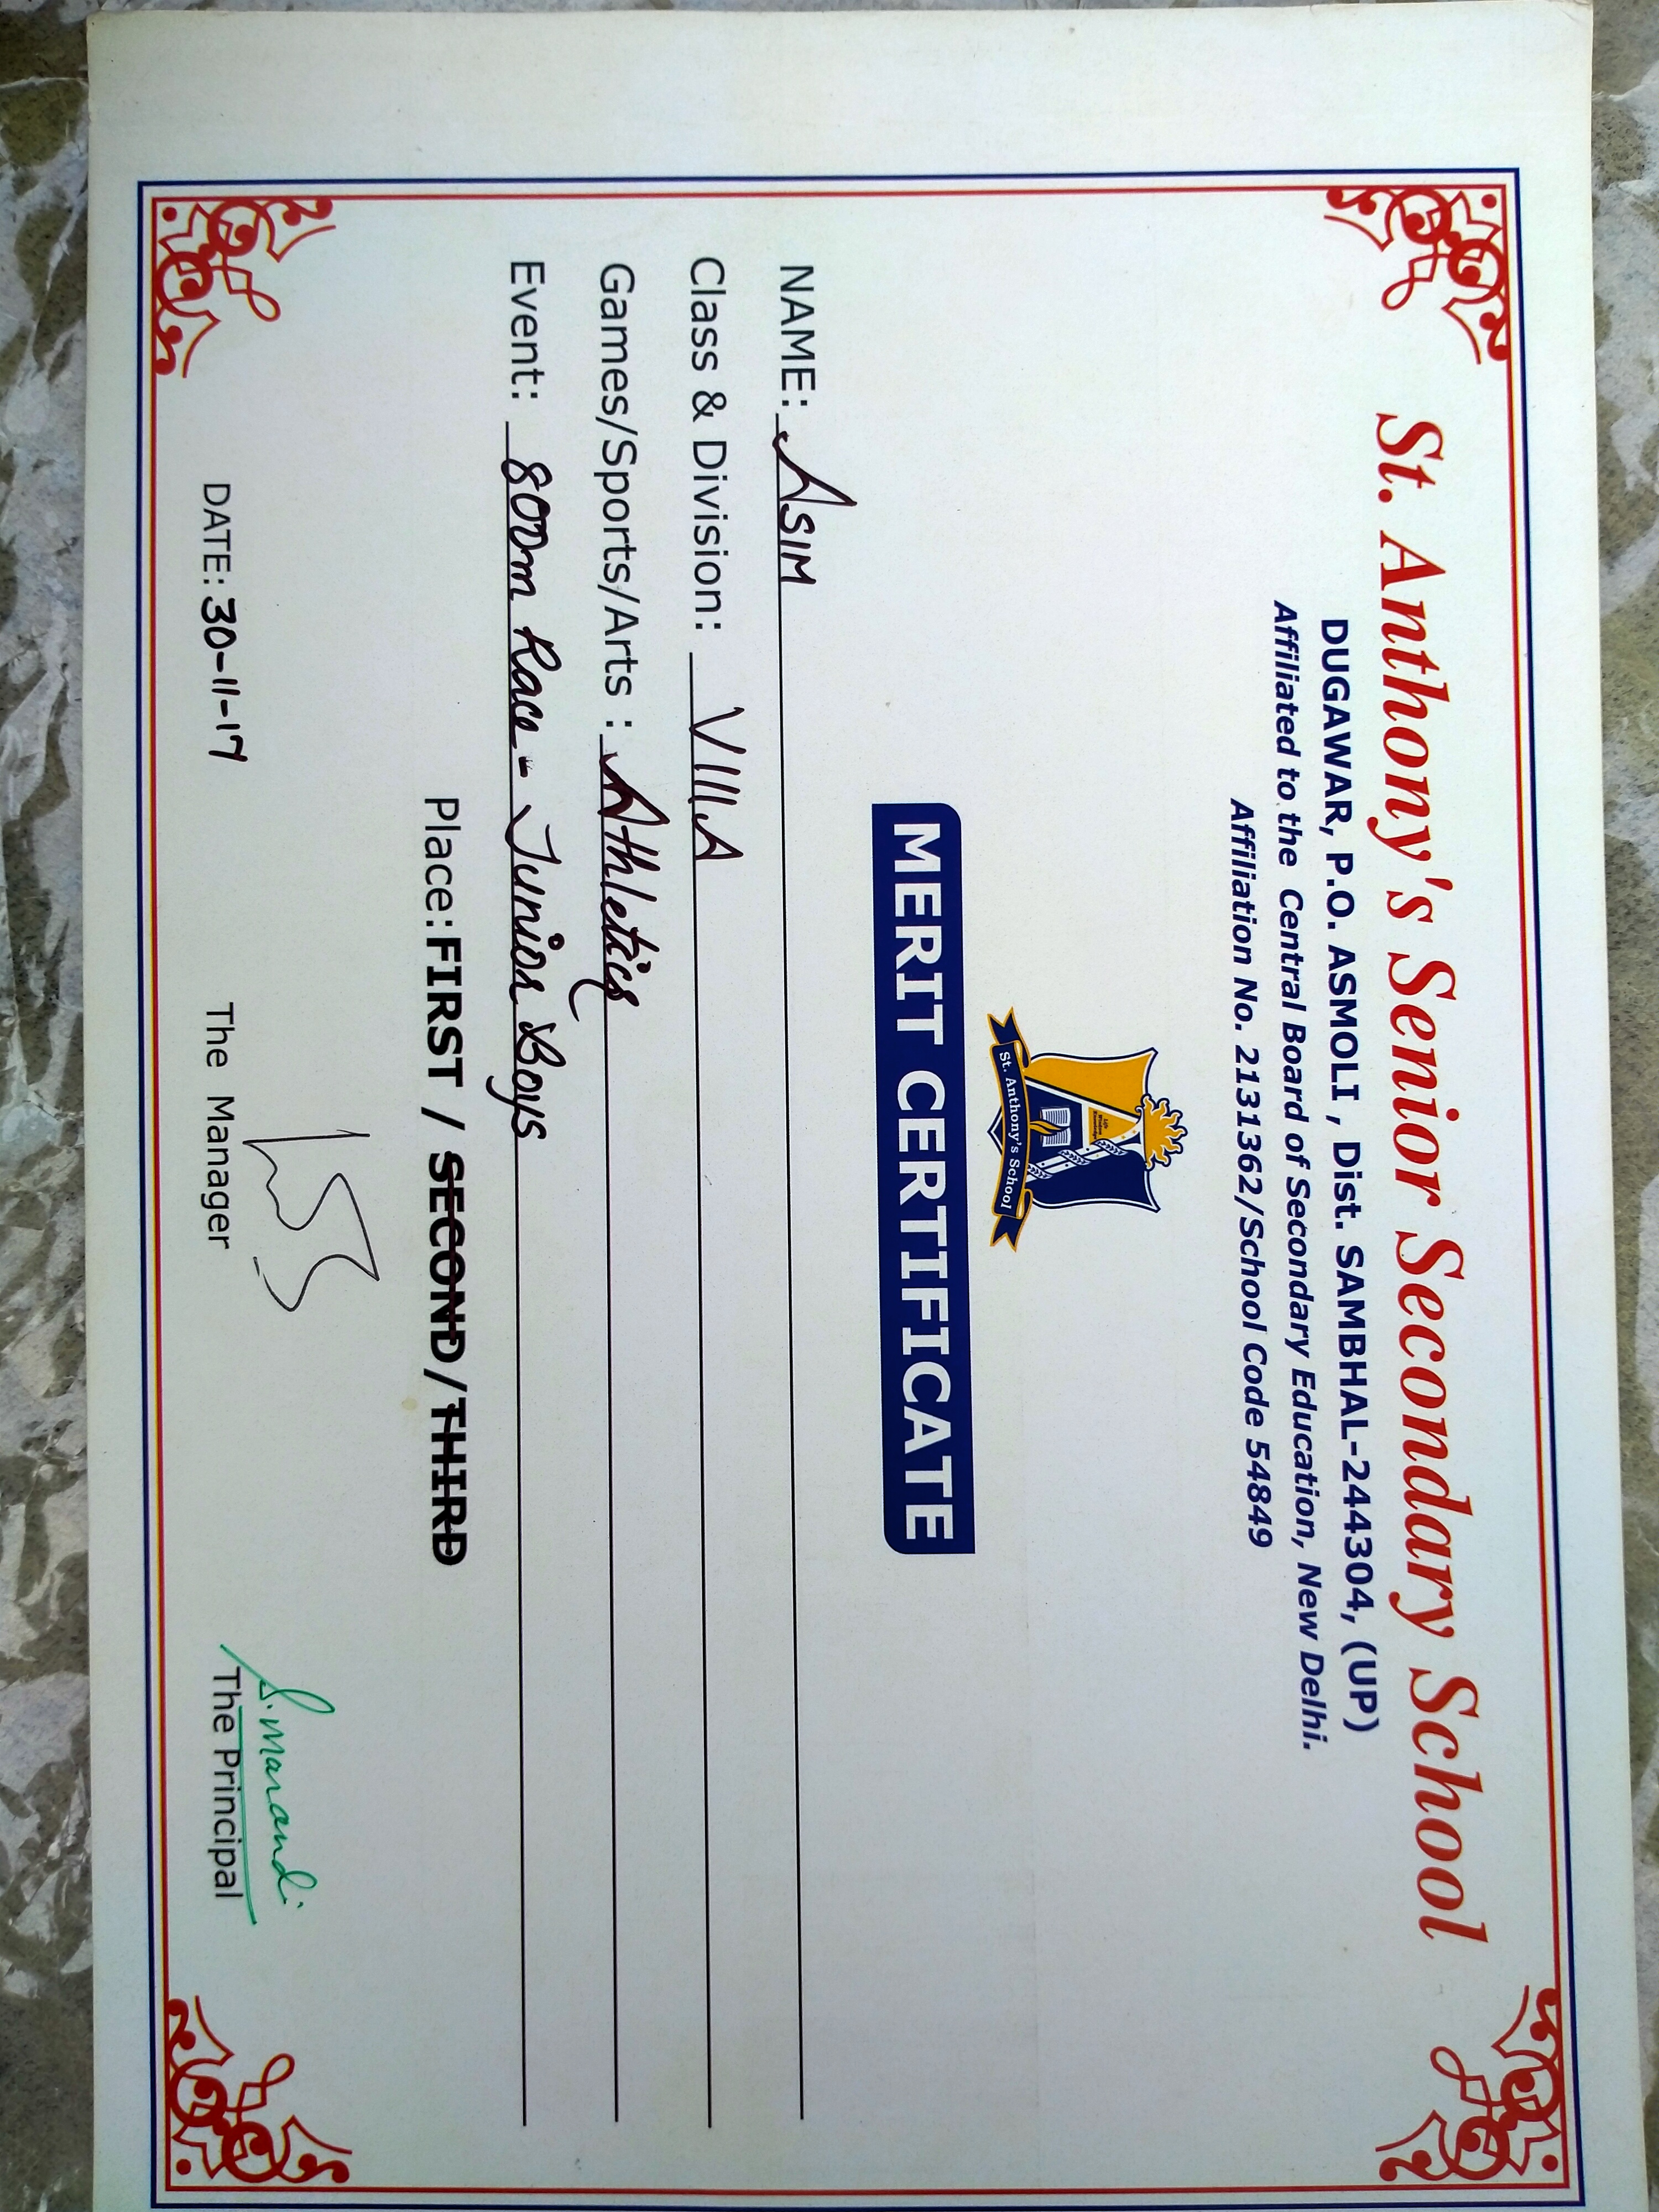 St. Anthony's Senior Secondary School
DUGAWAR, P.O. ASMOLI , Dist. SAMBHAL-244304, (UP)
Affiliated to the Central Board of Secondary Education, New Delhi.
Affiliation No. 2131362/School Code 54849
Life
Wisdom
Knowledge
St. Anthony's School
MERIT CERTIFICATE
NAME: ASIM
Class & Division: VIII A
Games/Sports/Arts : Athletics
Event: 800m Race - Junior Boys
Place: FIRST / SECOND/THIRD
S. Marandi
DATE: 30-11-17 The Manager The Principal